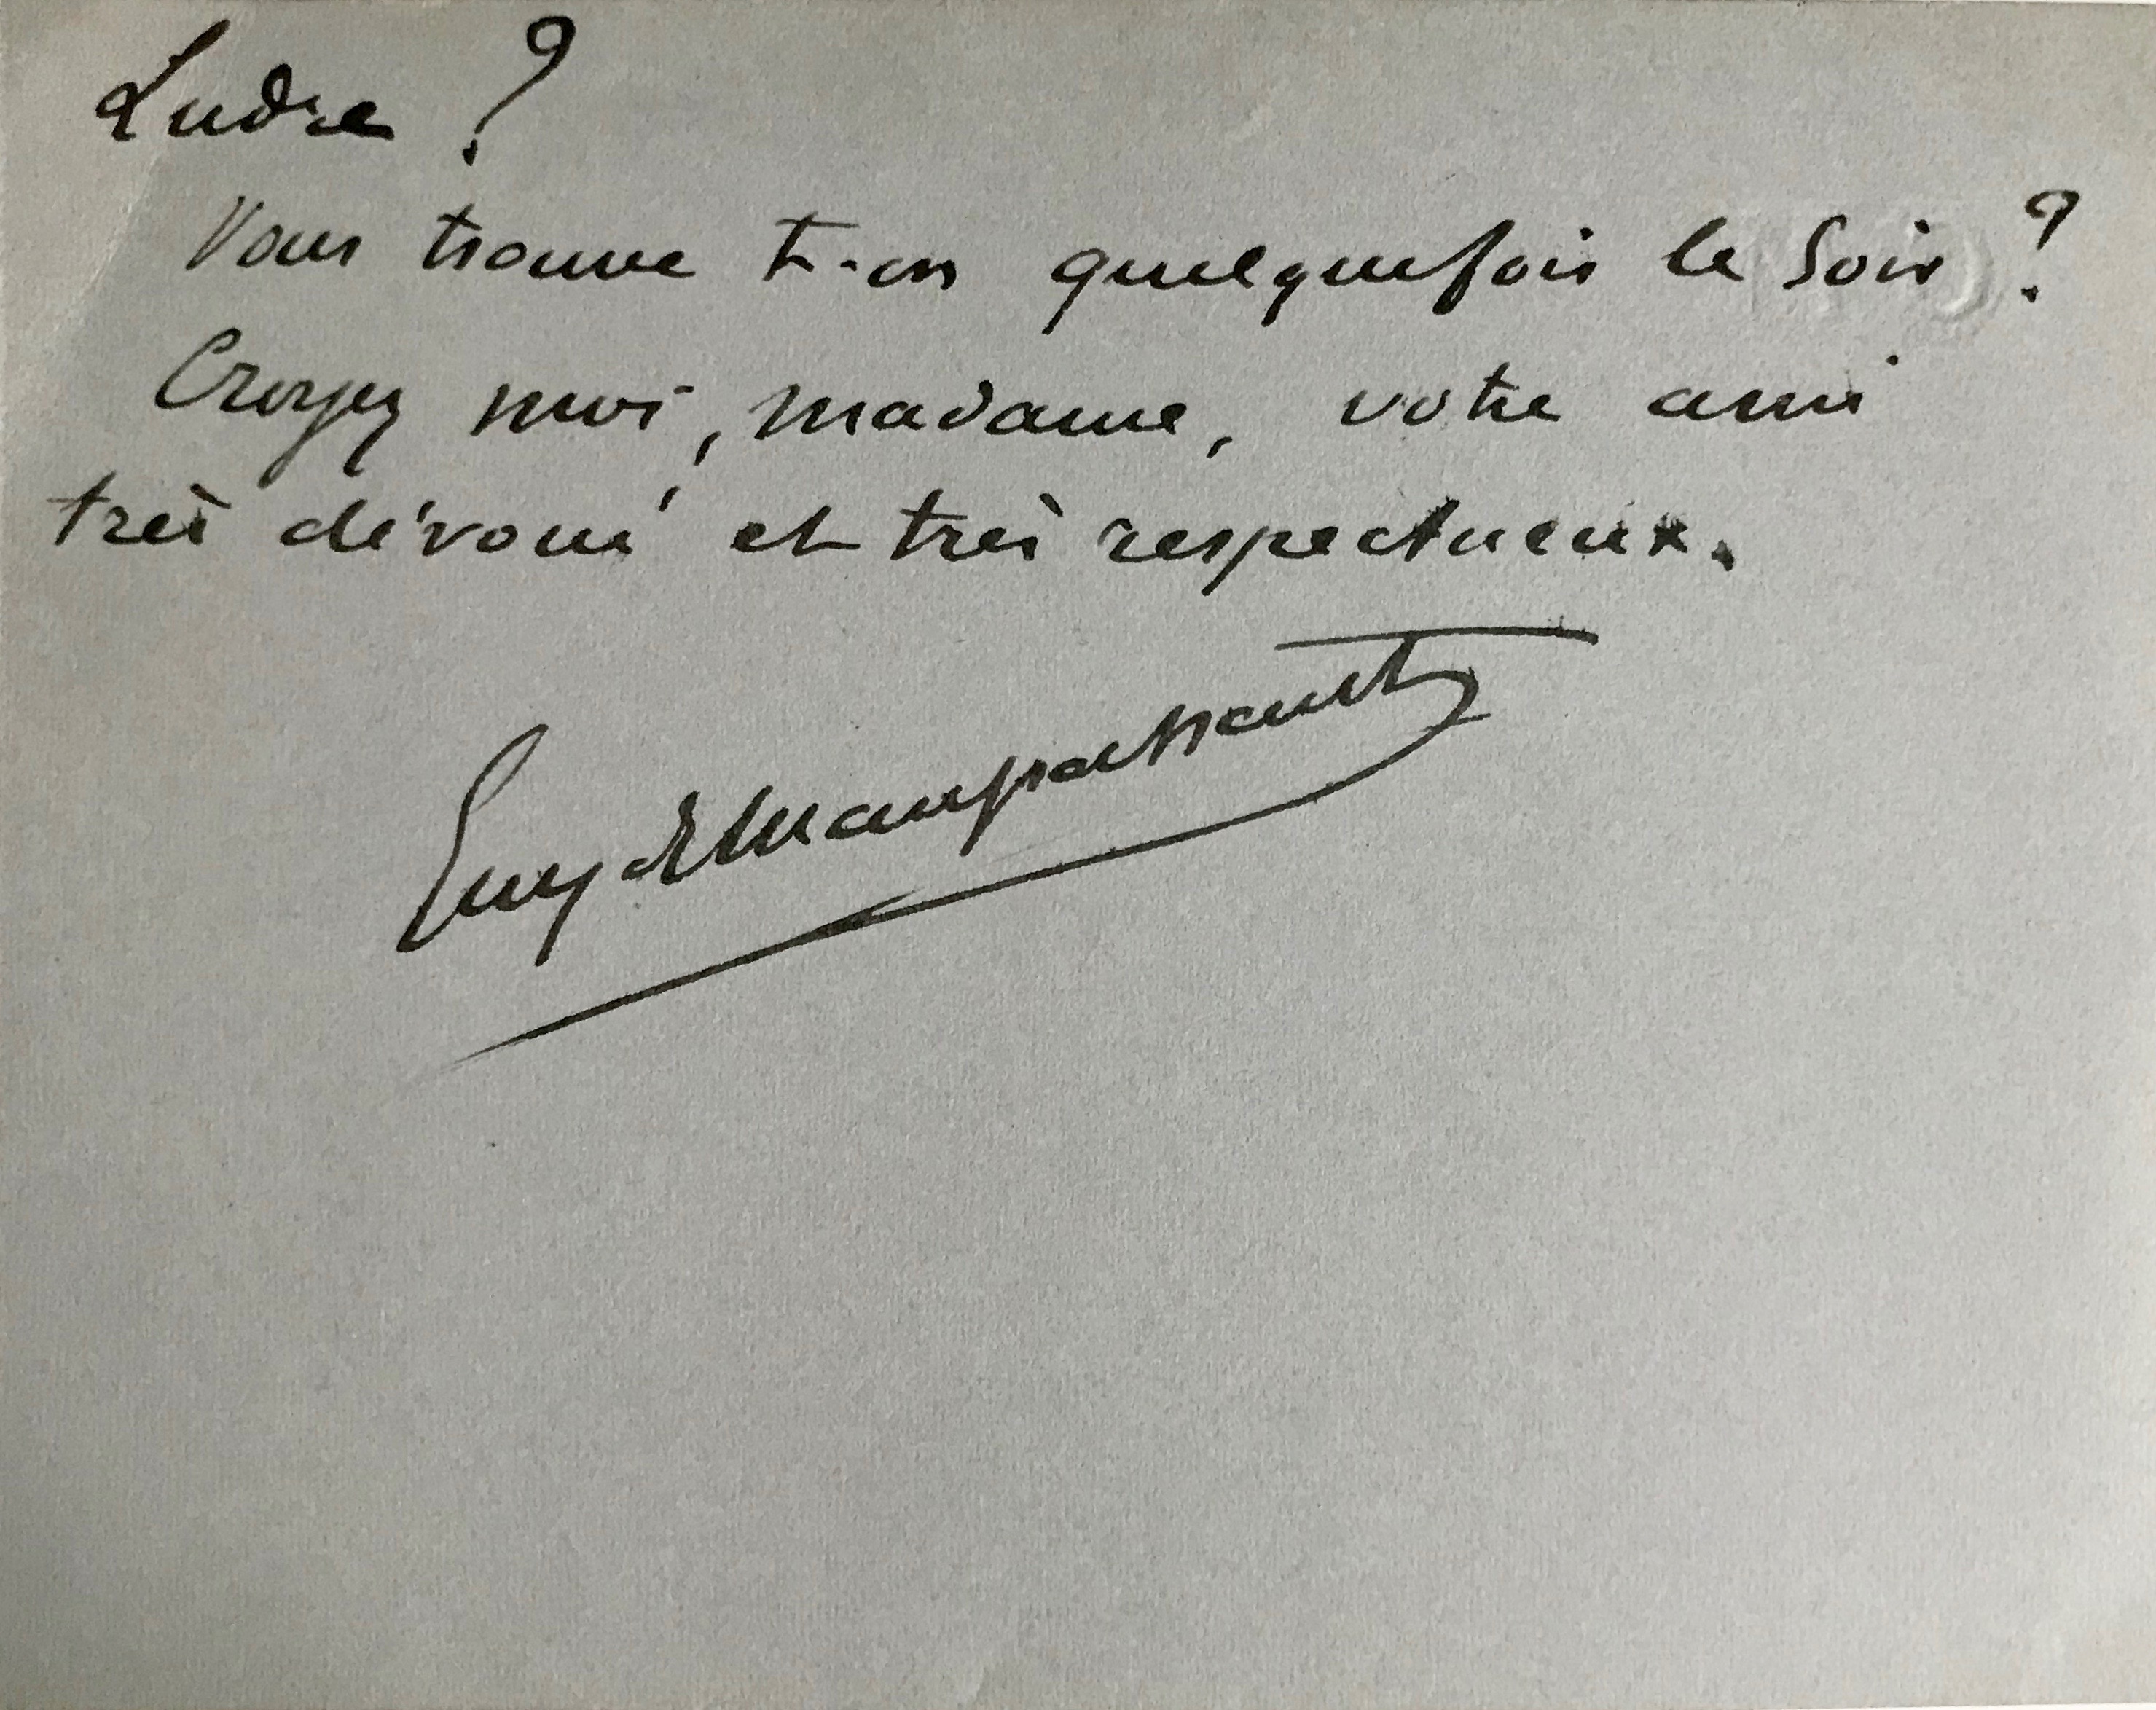 Ludre ?
Vous trouve t-on quelquefois le soir ?
Croyez moi, madame, votre ami
très dévoué et très respectueux.
Guy de Maupassant